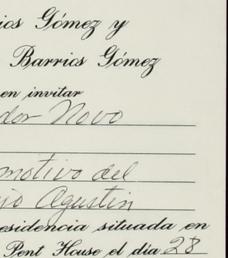 ios Gómez y
Barrios Gómez
en invitar
dor Novo
motivo del
jo Agustin
esidencia situada en
Pent House el día 28